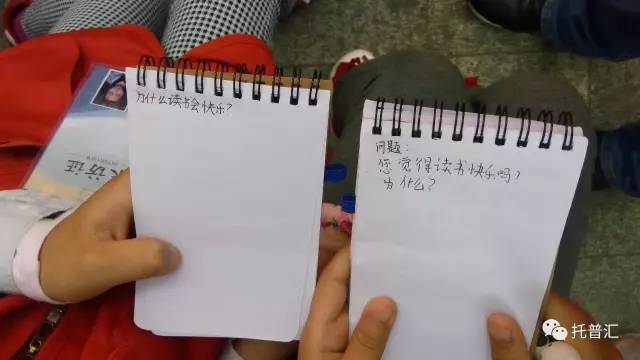 为什么读书会快乐?
问题:
您觉得读书快乐吗?
为什么?
采访证
托普汇